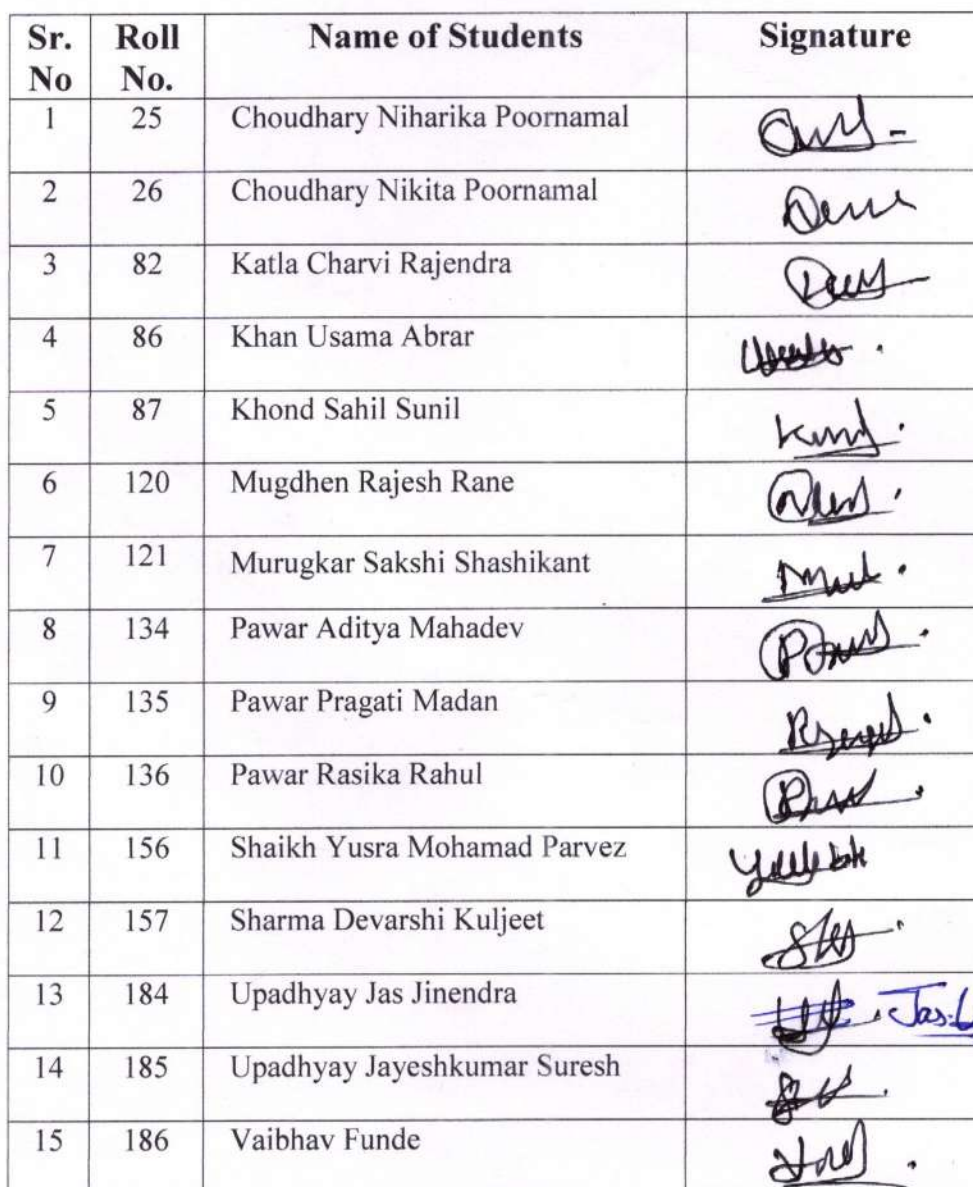 Sr. No Roll No. Name of Students Signature
1 25 Choudhary Niharika Poornamal
2 26 Choudhary Nikita Poornamal
3 82 Katla Charvi Rajendra
4 86 Khan Usama Abrar
5 87 Khond Sahil Sunil
6 120 Mugdhen Rajesh Rane
7 121 Murugkar Sakshi Shashikant
8 134 Pawar Aditya Mahadev
9 135 Pawar Pragati Madan
10 136 Pawar Rasika Rahul
11 156 Shaikh Yusra Mohamad Parvez
12 157 Sharma Devarshi Kuljeet
13 184 Upadhyay Jas Jinendra
14 185 Upadhyay Jayeshkumar Suresh
15 186 Vaibhav Funde